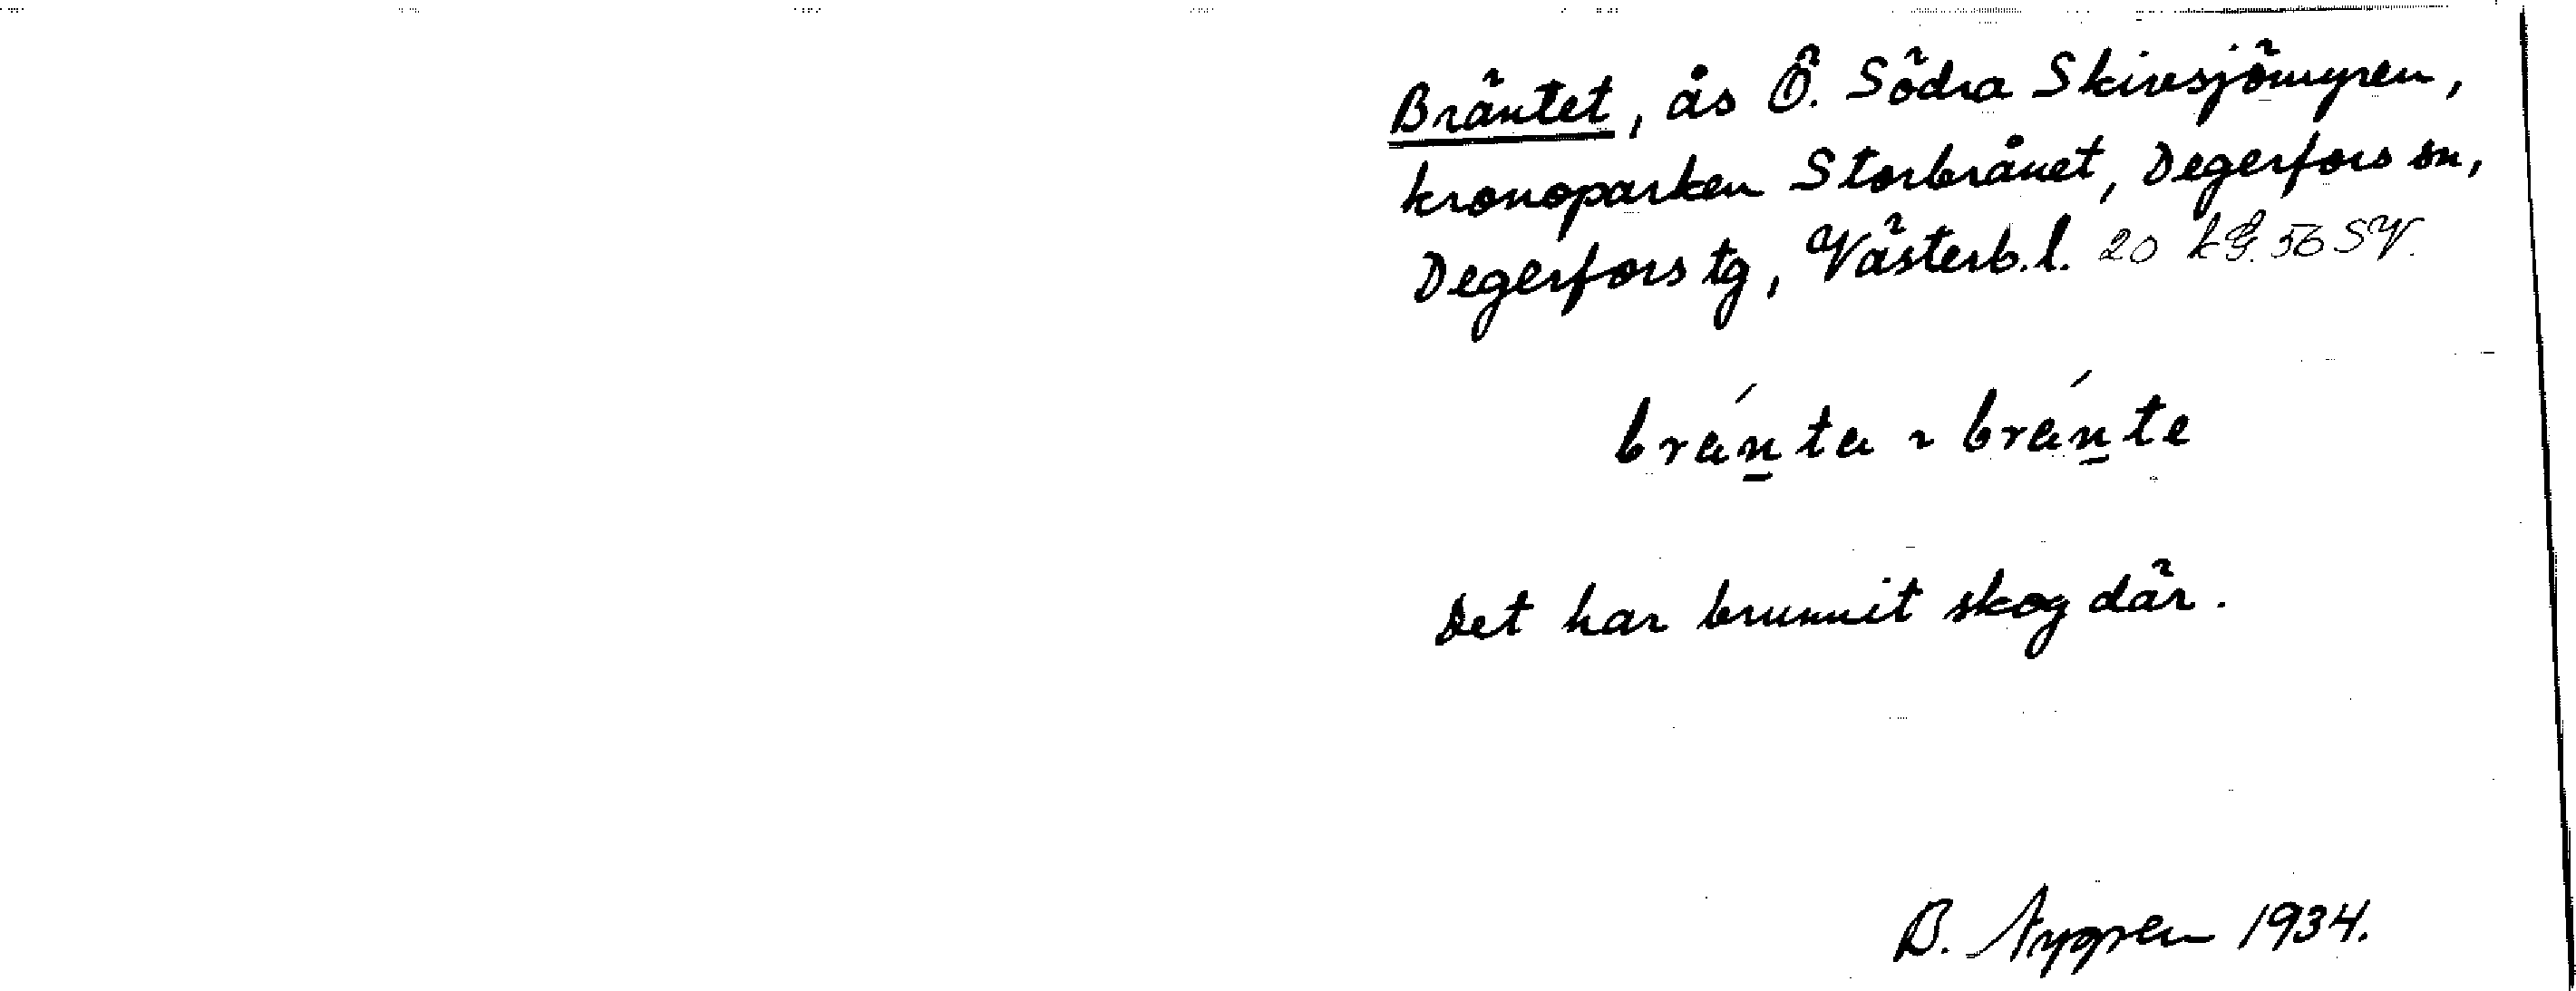 Bräntet, ås Ö. Södra Skivesjömyren,
kronoparken Storbrånet, Degerfors sn,
Degerfors tg, Västerb.l. 20 kG. 56 SV.
brán̲ta ~ brán̲te
Det har brunnit skog där.
B. Nygren 1934.